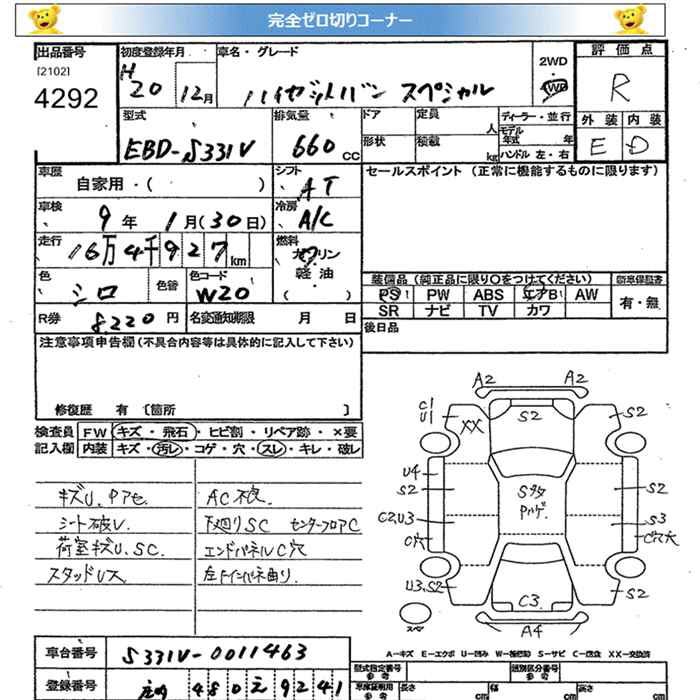 完全ゼロ切りコーナー
出品番号
[2102]
4292
初度登録年月
H20 12月
車名・グレード
ハイゼットバン スペシャル
2WD
4WD
評価点
R
外装 内装
E D
型式
EBD-S331V
排気量
660 cc
ドア
定員
人
形状
積載
kg
ディーラー・並行
モデル年式 年
ハンドル 左・右
車歴
自家用・( )
シフト
AT
セールスポイント (正常に機能するものに限ります)
車検
9年 1月(30日)
冷房
A/C
走行
16万4千927km
燃料
ガソリン
軽油
( )
色
シロ
色替
色コード
W20
装備品(純正品に限り○をつけてください)
新車保証書
PS PW ABS エアB AW
SR ナビ TV カワ
有・無
R券 8220円
名変通知期限 月 日
後日品
注意事項申告欄(不具合内容等は具体的に記入して下さい)
修復歴 有 〔箇所 〕
検査員記入欄
FW キズ・飛石・ヒビ割・リペア跡・×要
内装 キズ・汚レ・コゲ・穴・スレ・キレ・破レ
キズU、Pアセ
シート破レ
荷室キズU、SC
スタッドレス
AC不良
下廻りSC センターフロアC
エンドパネルC穴
左インパネ曲り
A2 A2
C1
U1
XX
S2
S2
U4
S2
S2
C2,U3
S3
C穴
U3,S2
S2
C3
A4
スペア
A-キズ E-エクボ U-凹み W-補修跡 S-サビ C-腐食 XX-交換済
車台番号
S331V-0011463
登録番号
480 え 9241
型式指定番号
参考
類別区分番号
参考
車庫証明用
参考
長さ cm
幅 cm
高さ cm